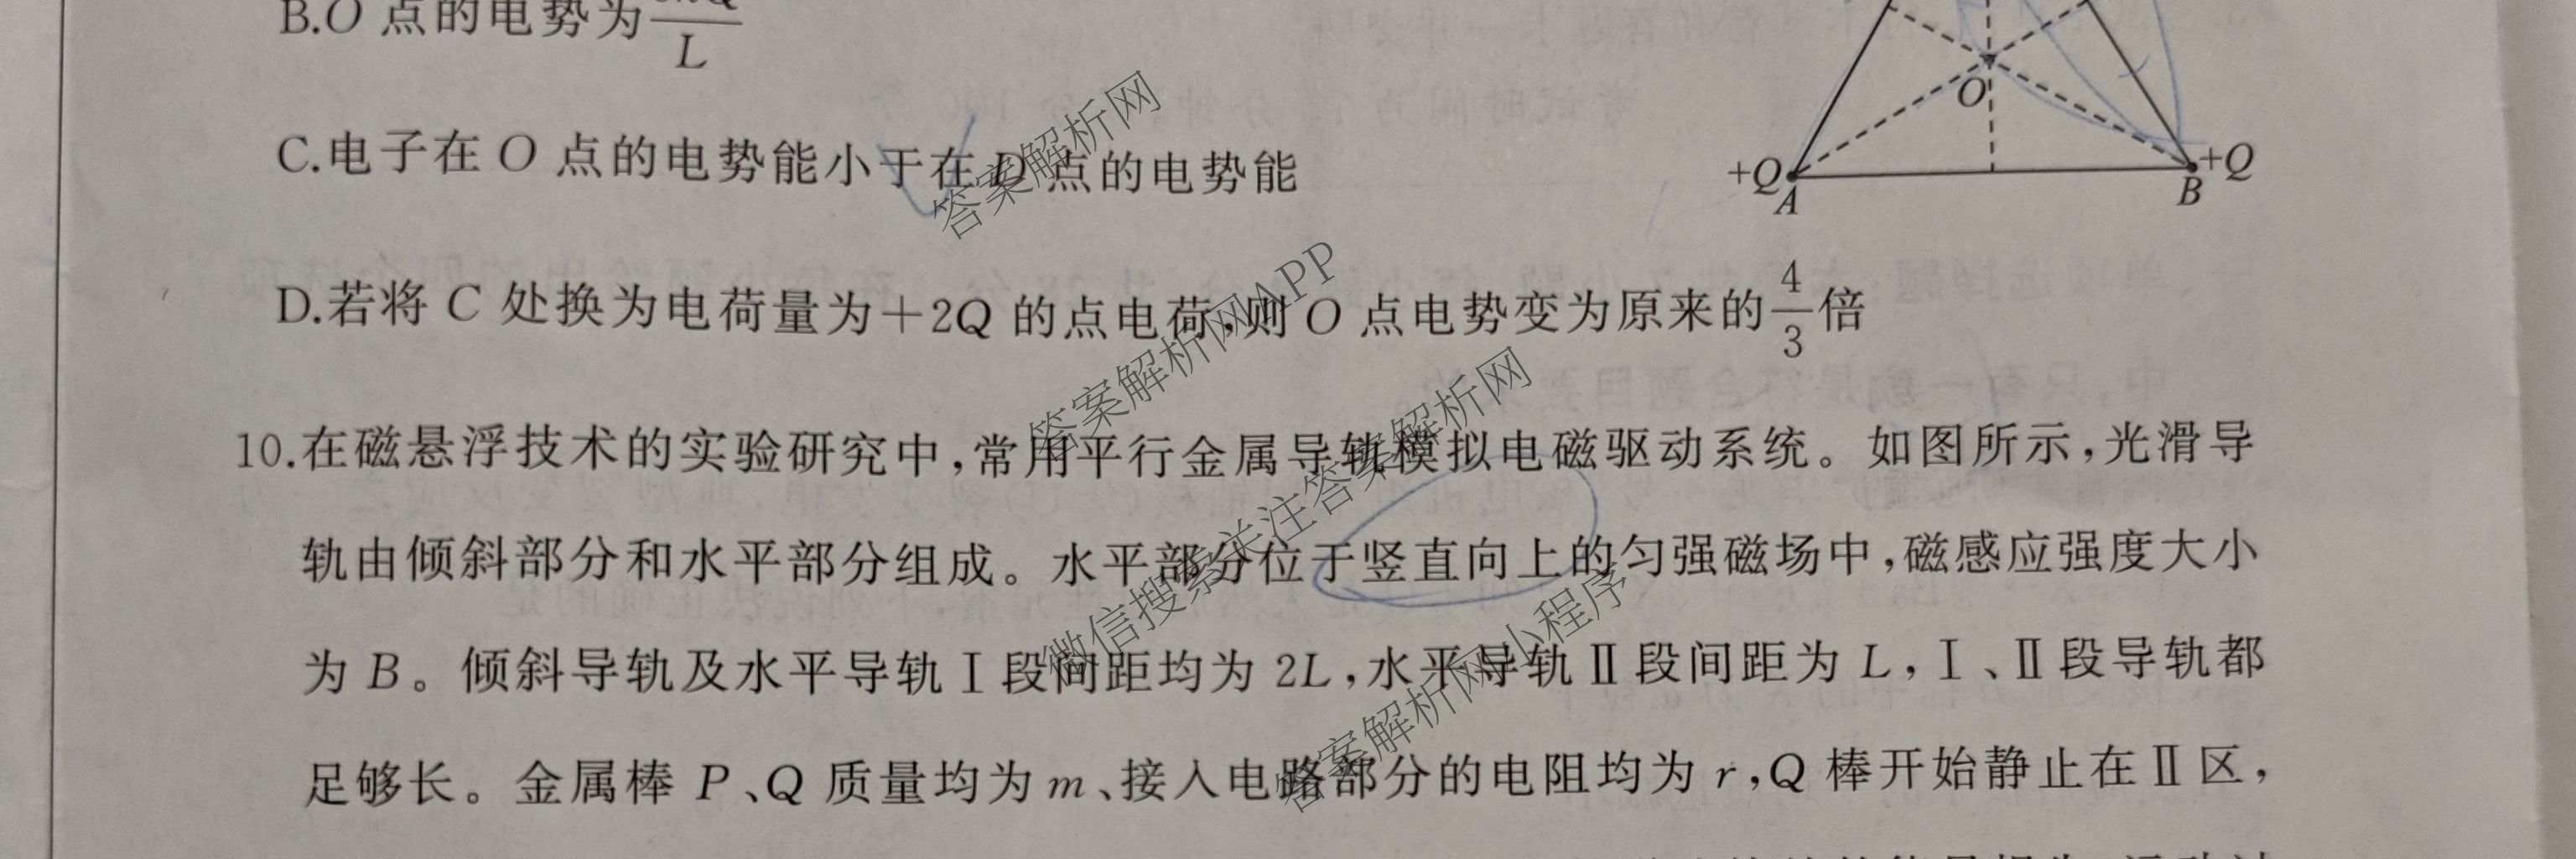 B.O 点的电势为 Q/L
C.电子在 O 点的电势能小于在 D 点的电势能
D.若将 C 处换为电荷量为+2Q 的点电荷,则 O 点电势变为原来的 4/3 倍
O
+Q
A
+Q
B
10.在磁悬浮技术的实验研究中,常用平行金属导轨模拟电磁驱动系统。如图所示,光滑导
轨由倾斜部分和水平部分组成。水平部分位于竖直向上的匀强磁场中,磁感应强度大小
为 B。倾斜导轨及水平导轨Ⅰ段间距均为 2L,水平导轨Ⅱ段间距为 L,Ⅰ、Ⅱ段导轨都
足够长。金属棒 P、Q 质量均为 m、接入电路部分的电阻均为 r,Q 棒开始静止在Ⅱ区,
答案解析网
答案解析网APP
微信搜索关注答案解析网
答案解析网小程序